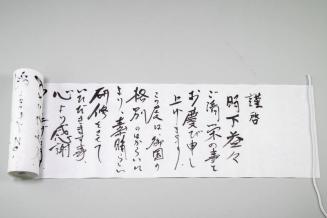 謹啓
時下益々
ご清栄の事と
お慶び申し
上げます。
この度は、御国の
格別のはからいに
より、素晴らしい
研修をさせて
いただきます事、
心より感謝